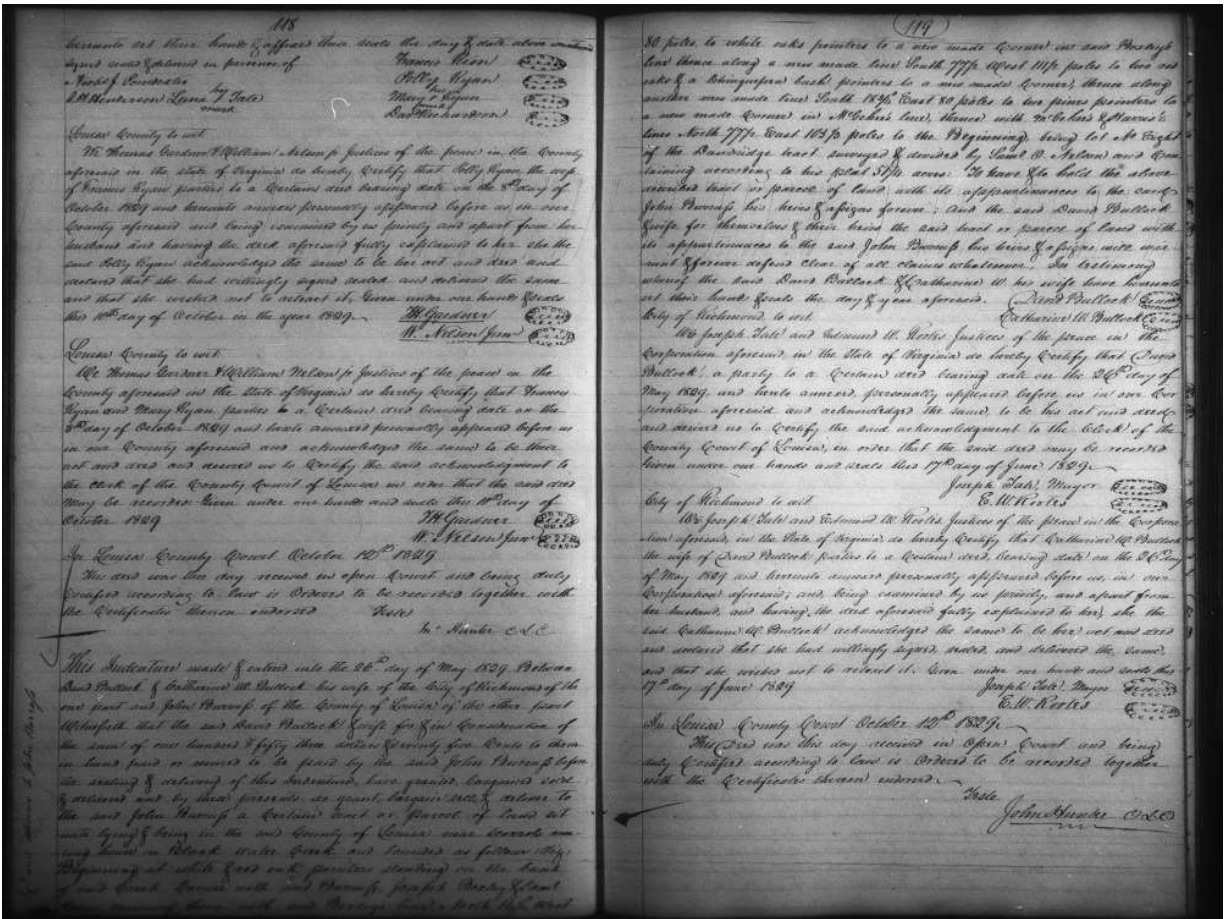 118
hereunto set their hands & affixed their seals the day & date above
signed sealed & delivered in presence of
Francis Ryan
Polly Ryan
her
Mary + Ryan
mark
Dav Richardson
Henderson Lena + Tate
mark
Louisa County to wit
We Thomas Gardner & William Nelson jr Justices of the peace in the County
aforesaid in the state of Virginia do hereby Certify that Polly Ryan the wife
of Francis Ryan parties to a Certain deed bearing date on the 8th day of
October 1829 and hereunto annexed personally appeared before us in our
County aforesaid and being examined by us privily and apart from her
husband and having the deed aforesaid fully explained to her she the
said Polly Ryan acknowledged the same to be her act and deed and
declared that she had willingly signed sealed and delivered the same
and that she wished not to retract it. Given under our hands & seals
this 10th day of October in the year 1829.
TH Gardner
W. Nelson Junr
Louisa County to wit
We Thomas Gardner & William Nelson jr Justices of the peace in the
County aforesaid in the State of Virginia do hereby Certify that Francis
Ryan and Mary Ryan parties to a Certain deed bearing date on the
8th day of October 1829 and hereto annexed personally appeared before us
in our County aforesaid and acknowledged the same to be their
act and deed and desired us to Certify the said acknowledgment to
the Clerk of the County Court of Louisa in order that the said deed
May be recorded Given under our hands and seals this 10th day of
October 1829
TH Gardner
W. Nelson Junr
In Louisa County Court October 12th 1829
This deed was this day received in open Court and being duly
Certified according to law is Ordered to be recorded together with
the Certificates thereon endorsed
Teste
Jno Hunter C L C
This Indenture made & entered into the 26th day of May 1829 Between
David Bullock & Catharine W. Bullock his wife of the City of Richmond of the
one part and John Burruss of the County of Louisa of the other part
Witnesseth that the said David Bullock & wife for & in Consideration of
the sum of one hundred & fifty three dollars & seventy five Cents to them
in hand paid or secured to be paid by the said John Burruss before
the sealing & delivery of this Indenture, have granted bargained sold
& delivered and by these presents do grant, bargain sell & deliver to
the said John Burruss a Certain tract or parcel of land sit
uate lying & being in the said County of Louisa near
on Black Water Creek and bounded as follows Viz.
Beginning at white & red oak pointers standing on the bank
of said Creek Corner with said Burruss, Joseph Boxley &
119
80 poles, to white oaks pointers to a new made Corner in said Boxley's
line thence along a new made line South 77½ West 111½ poles to two red
oaks & a Chinquepin bush pointers to a new made Corner, thence along
another new made line South 18¾ East 80 poles to two pines pointers to
a new made Corner in McGehee's line, thence with McGehee's & Harris's
lines North 77½ East 103½ poles to the Beginning being lot No Eight
of the Dandridge tract surveyed & divided by Saml O. Nelson and Con
taining according to his plat 51¼ acres: To have & to hold the above
described tract or parcel of land with its appurtenances to the said
John Burruss his heirs & assigns forever: And the said David Bullock
& wife for themselves & their heirs the said tract or parcel of land with
its appurtenances to the said John Burruss his heirs & assigns will war
rant & forever defend Clear of all claims whatsoever. In testimony
whereof the said David Bullock & Catharine W. his wife have hereunto
set their hands & seals the day & year aforesaid.
David Bullock
City of Richmond to wit
Catharine W. Bullock
We Joseph Tate and Edmund W. Rootes Justices of the peace in the
Corporation aforesaid, in the State of Virginia do hereby Certify that David
Bullock, a party to a Certain deed bearing date on the 26th day of
May 1829 and hereto annexed, personally appeared before us in our Cor
poration aforesaid and acknowledged the same, to be his act and deed
and desired us to Certify the said acknowledgment to the Clerk of the
County Court of Louisa, in order that the said deed may be recorded
Given under our hands and seals this 17th day of June 1829.
Joseph Tate, Mayor
E. W. Rootes
City of Richmond to wit
We Joseph Tate and Edmund W. Rootes Justices of the peace in the Corpora
tion aforesaid, in the State of Virginia do hereby Certify that Catharine W. Bullock
the wife of David Bullock parties to a Certain deed, bearing date on the 26th day
of May 1829 and hereunto annexed personally appeared before us, in our
Corporation aforesaid; and being examined by us privily, and apart from
her husband, and having the deed aforesaid fully explained to her, she the
said Catharine W. Bullock acknowledged the same to be her act and deed
and declared that she had willingly signed, sealed, and delivered the same,
and that she wishes not to retract it. Given under our hands and seals this
17th day of June 1829
Joseph Tate, Mayor
E. W. Rootes
In Louisa County Court October 12th 1829.
This Deed was this day received in Open Court and being
duly Certified according to law is Ordered to be recorded together
with the Certificates thereon endorsed.
Teste
John Hunter C L C